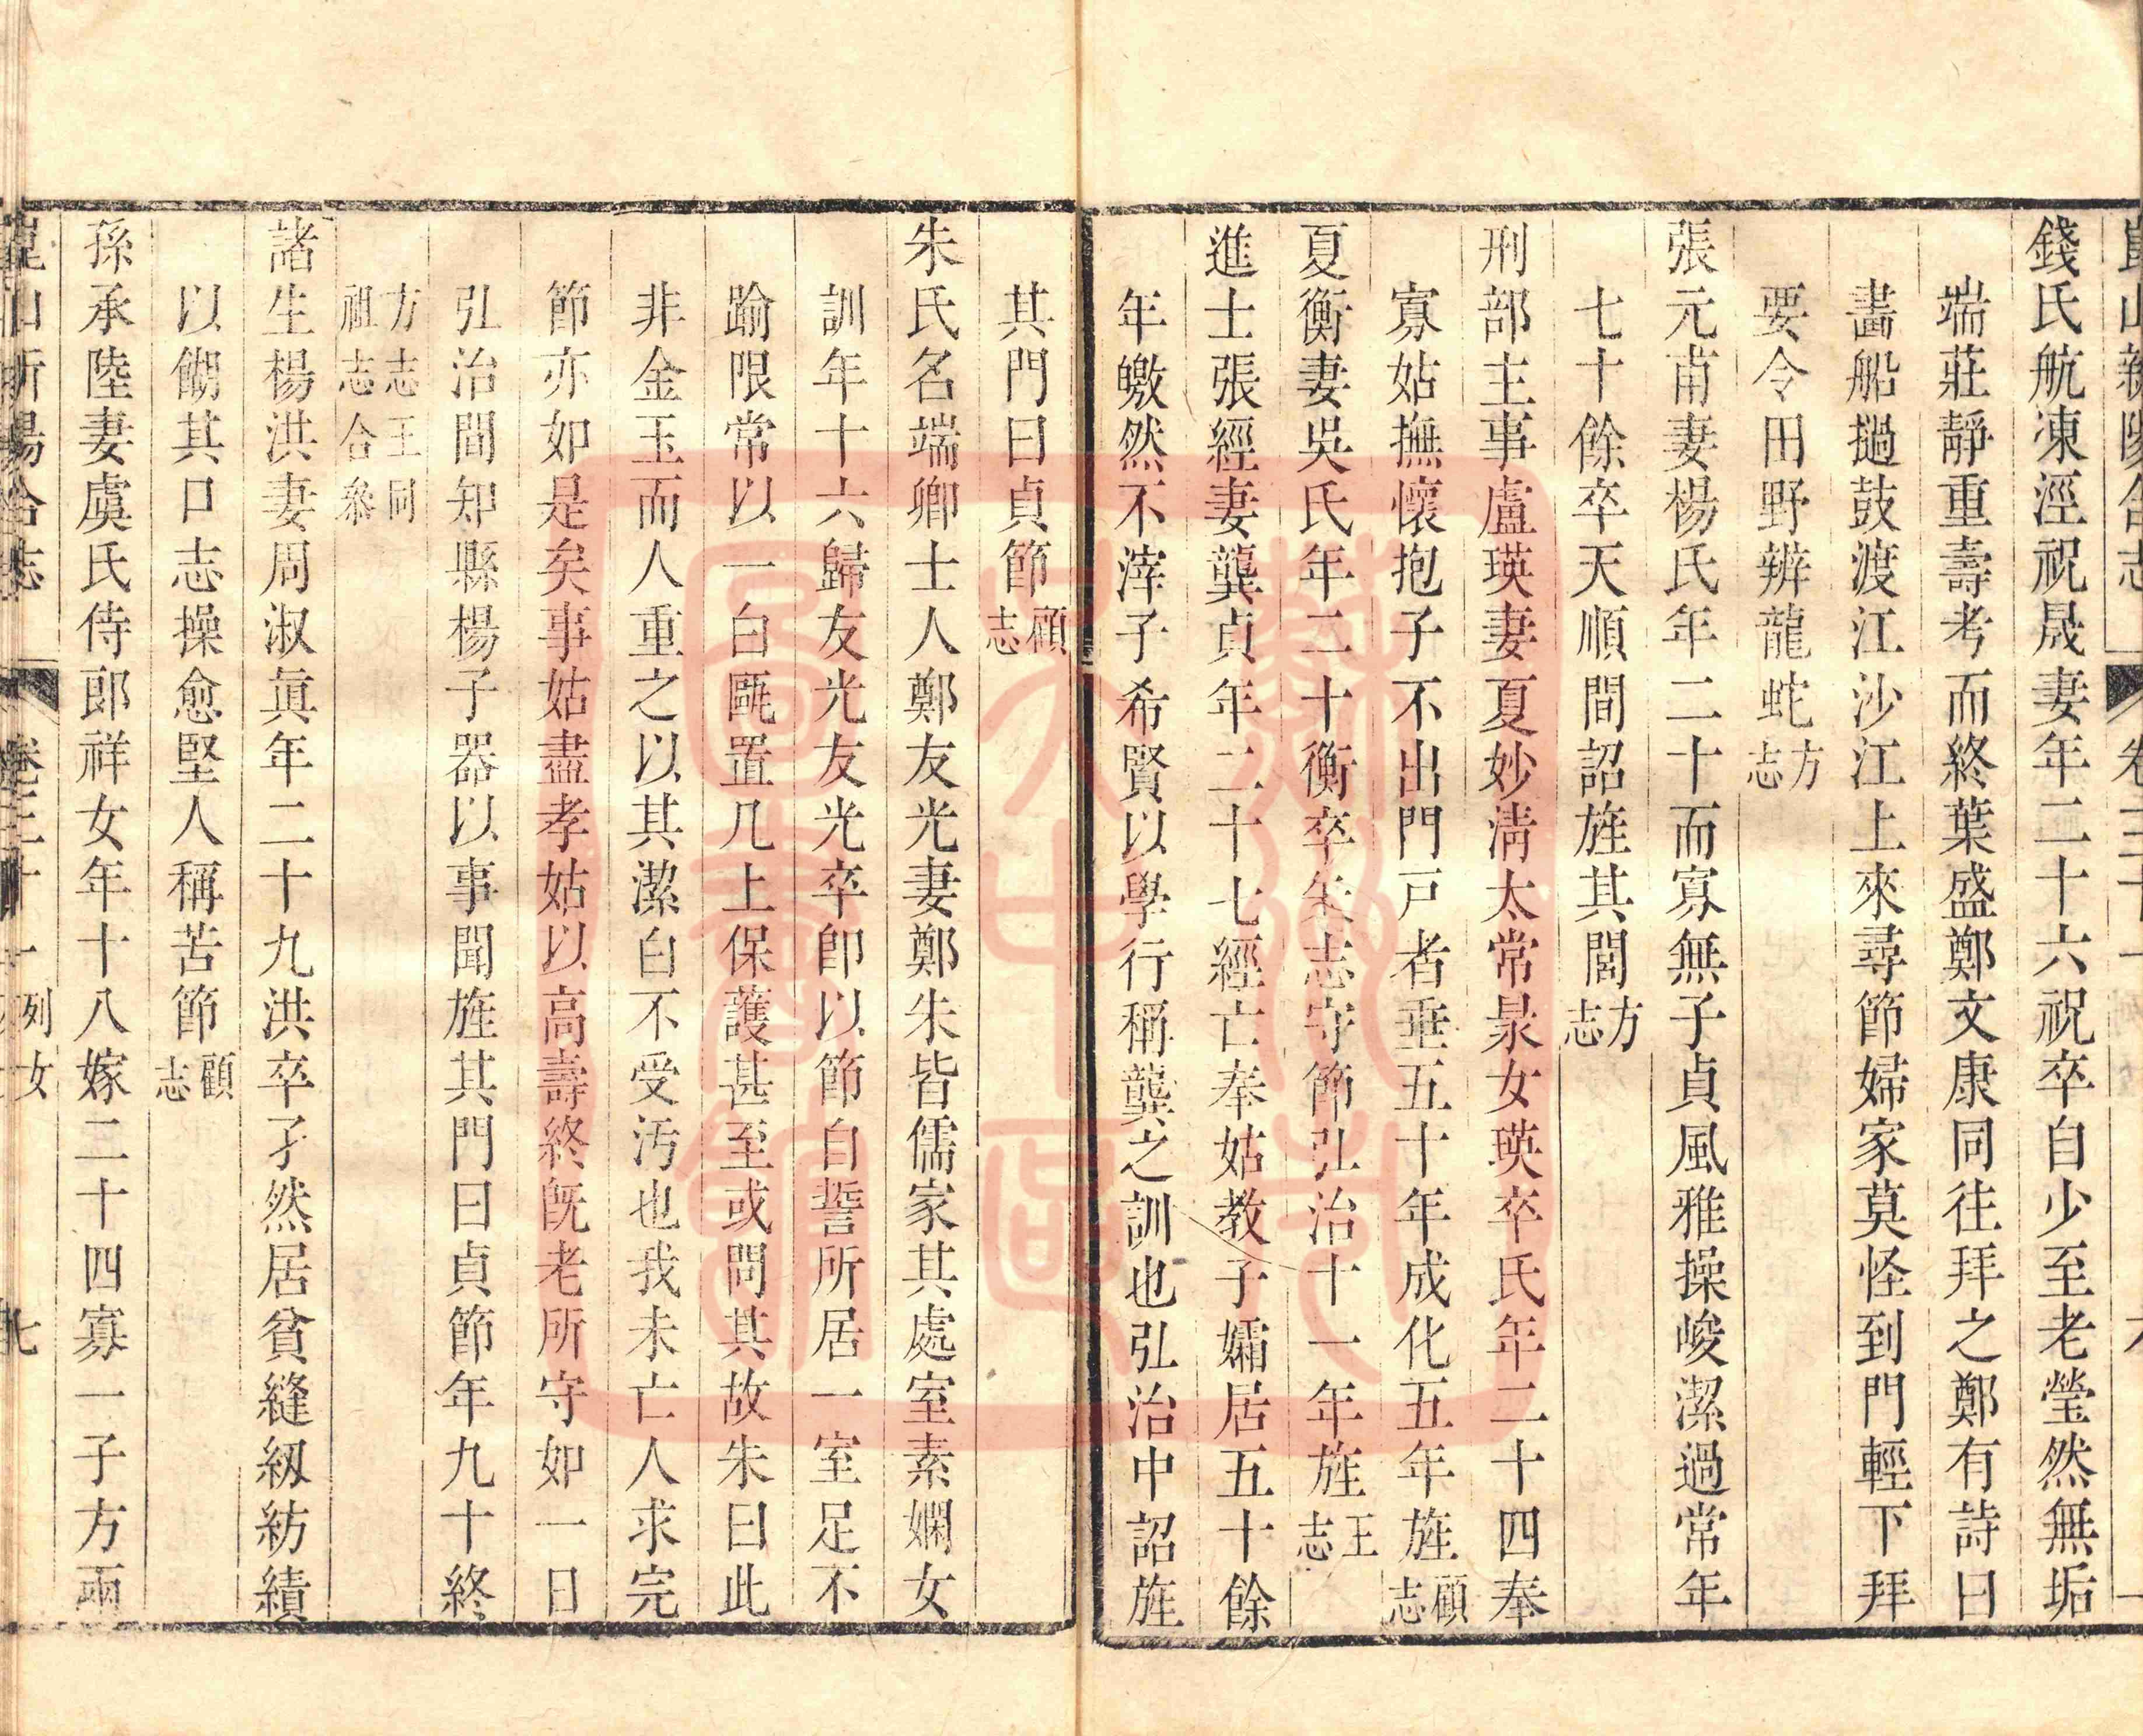 錢氏航涷涇祝晟妻年二十六祝卒自少至老瑩然無垢
端莊靜重壽考而終葉盛鄭文康同往拜之鄭有詩曰
畵船撾鼓渡江沙江上來尋節婦家莫怪到門輕下拜
要令田野辨龍蛇方志
張元甫妻楊氏年二十而寡無子貞風雅操峻潔過常年
七十餘卒天順間詔旌其閭方志
刑部主事盧瑛妻夏妙淸太常㫤女瑛卒氏年二十四奉
寡姑撫懷抱子不出門戸者垂五十年成化五年旌顧志
夏衡妻吳氏年二十衡卒矢志守節弘治十一年旌王志
進士張經妻龔貞年二十七經亡奉姑教子孀居五十餘
年皦然不滓子希賢以學行稱龔之訓也弘治中詔旌
其門曰貞節顧志
朱氏名端卿士人鄭友光妻鄭朱皆儒家其處室素嫻女
訓年十六歸友光友光卒卽以節自誓所居一室足不
踰限常以一白甌置几上保護甚至或問其故朱曰此
非金玉而人重之以其潔白不受汚也我未亡人求完
節亦如是矣事姑盡孝姑以高壽終旣老所守如一日
弘治間知縣楊子器以事聞旌其門曰貞節年九十終
方志王同祖志合叅
諸生楊洪妻周淑眞年二十九洪卒孑然居貧縫紉紡績
以餬其口志操愈堅人稱苦節顧志
孫承陸妻虞氏侍郎祥女年十八嫁二十四寡一子方兩
崑山新陽合志 卷三十一 列女 七